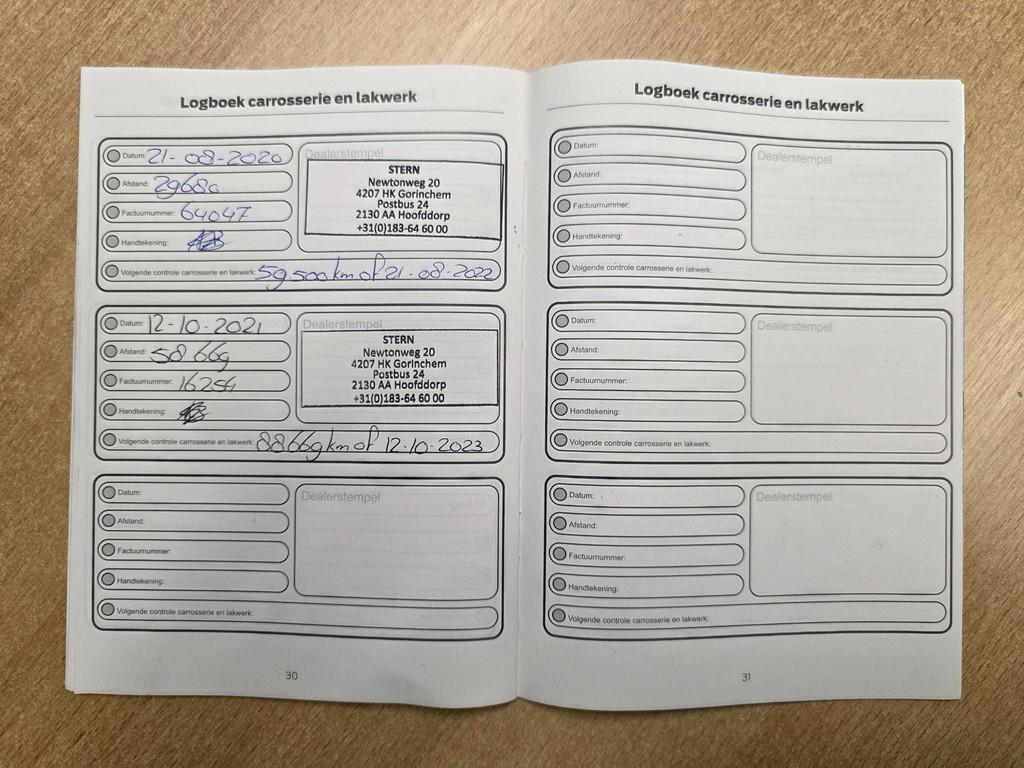 Logboek carrosserie en lakwerk
Datum: 21-08-2020
Afstand:
Factuurnummer: 64047
Handtekening:
Volgende controle carrosserie en lakwerk: 59500km of 21-08-2022
Dealerstempel
STERN
Newtonweg 20
4207 HK Gorinchem
Postbus 24
2130 AA Hoofddorp
+31(0)183-64 60 00
Datum: 12-10-2021
Afstand: 58669
Factuurnummer: 16254
Handtekening:
Volgende controle carrosserie en lakwerk: 88669km of 12-10-2023
Dealerstempel
STERN
Newtonweg 20
4207 HK Gorinchem
Postbus 24
2130 AA Hoofddorp
+31(0)183-64 60 00
Datum:
Afstand:
Factuurnummer:
Handtekening:
Volgende controle carrosserie en lakwerk:
Dealerstempel
30
Logboek carrosserie en lakwerk
Datum:
Afstand:
Factuurnummer:
Handtekening:
Volgende controle carrosserie en lakwerk:
Dealerstempel
Datum:
Afstand:
Factuurnummer:
Handtekening:
Volgende controle carrosserie en lakwerk:
Dealerstempel
Datum:
Afstand:
Factuurnummer:
Handtekening:
Volgende controle carrosserie en lakwerk:
Dealerstempel
31